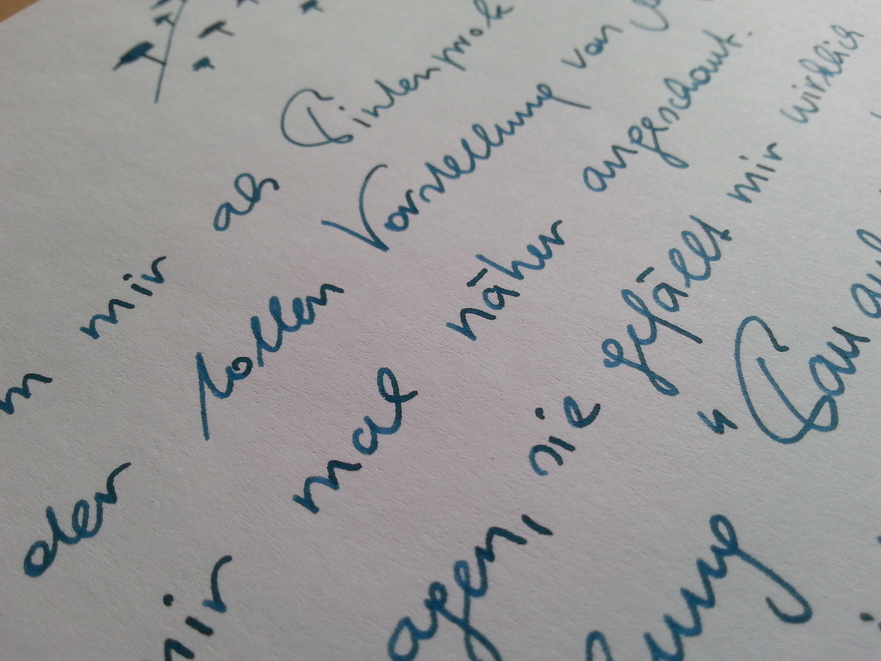 mir als Tintenprobe
der tollen Vorstellung von
mir mal näher angeschaut.
agen, sie gefällt mir wirklich
ung "Tau au